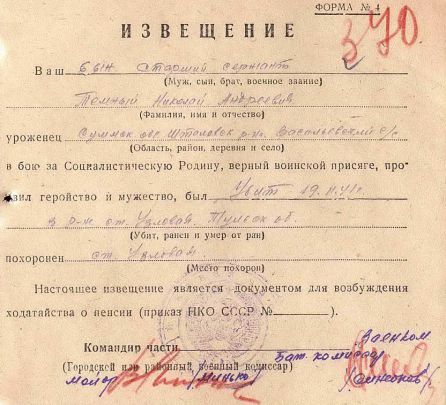 ФОРМА № 4
370
ИЗВЕЩЕНИЕ
Ваш сын старший сержант
(Муж, сын, брат, военное звание)
Темный Николай Андреевич
(Фамилия, имя и отчество)
уроженец Сумская обл Штеповск р-н Васильевский с/с
(Область, район, деревня и село)
в бою за Социалистическую Родину, верный воинской присяге, про-
явил геройство и мужество, был Убит 19.11.41г.
в р-не ст. Узловая Тульск об.
(Убит, ранен и умер от ран)
похоронен ст. Узловая.
(Место похорон)
Настоящее извещение является документом для возбуждения
ходатайства о пенсии (приказ НКО СССР № ).
Командир части
Военком
(Городской или районный военный комиссар)
Бат. комиссар
майор /Минько/